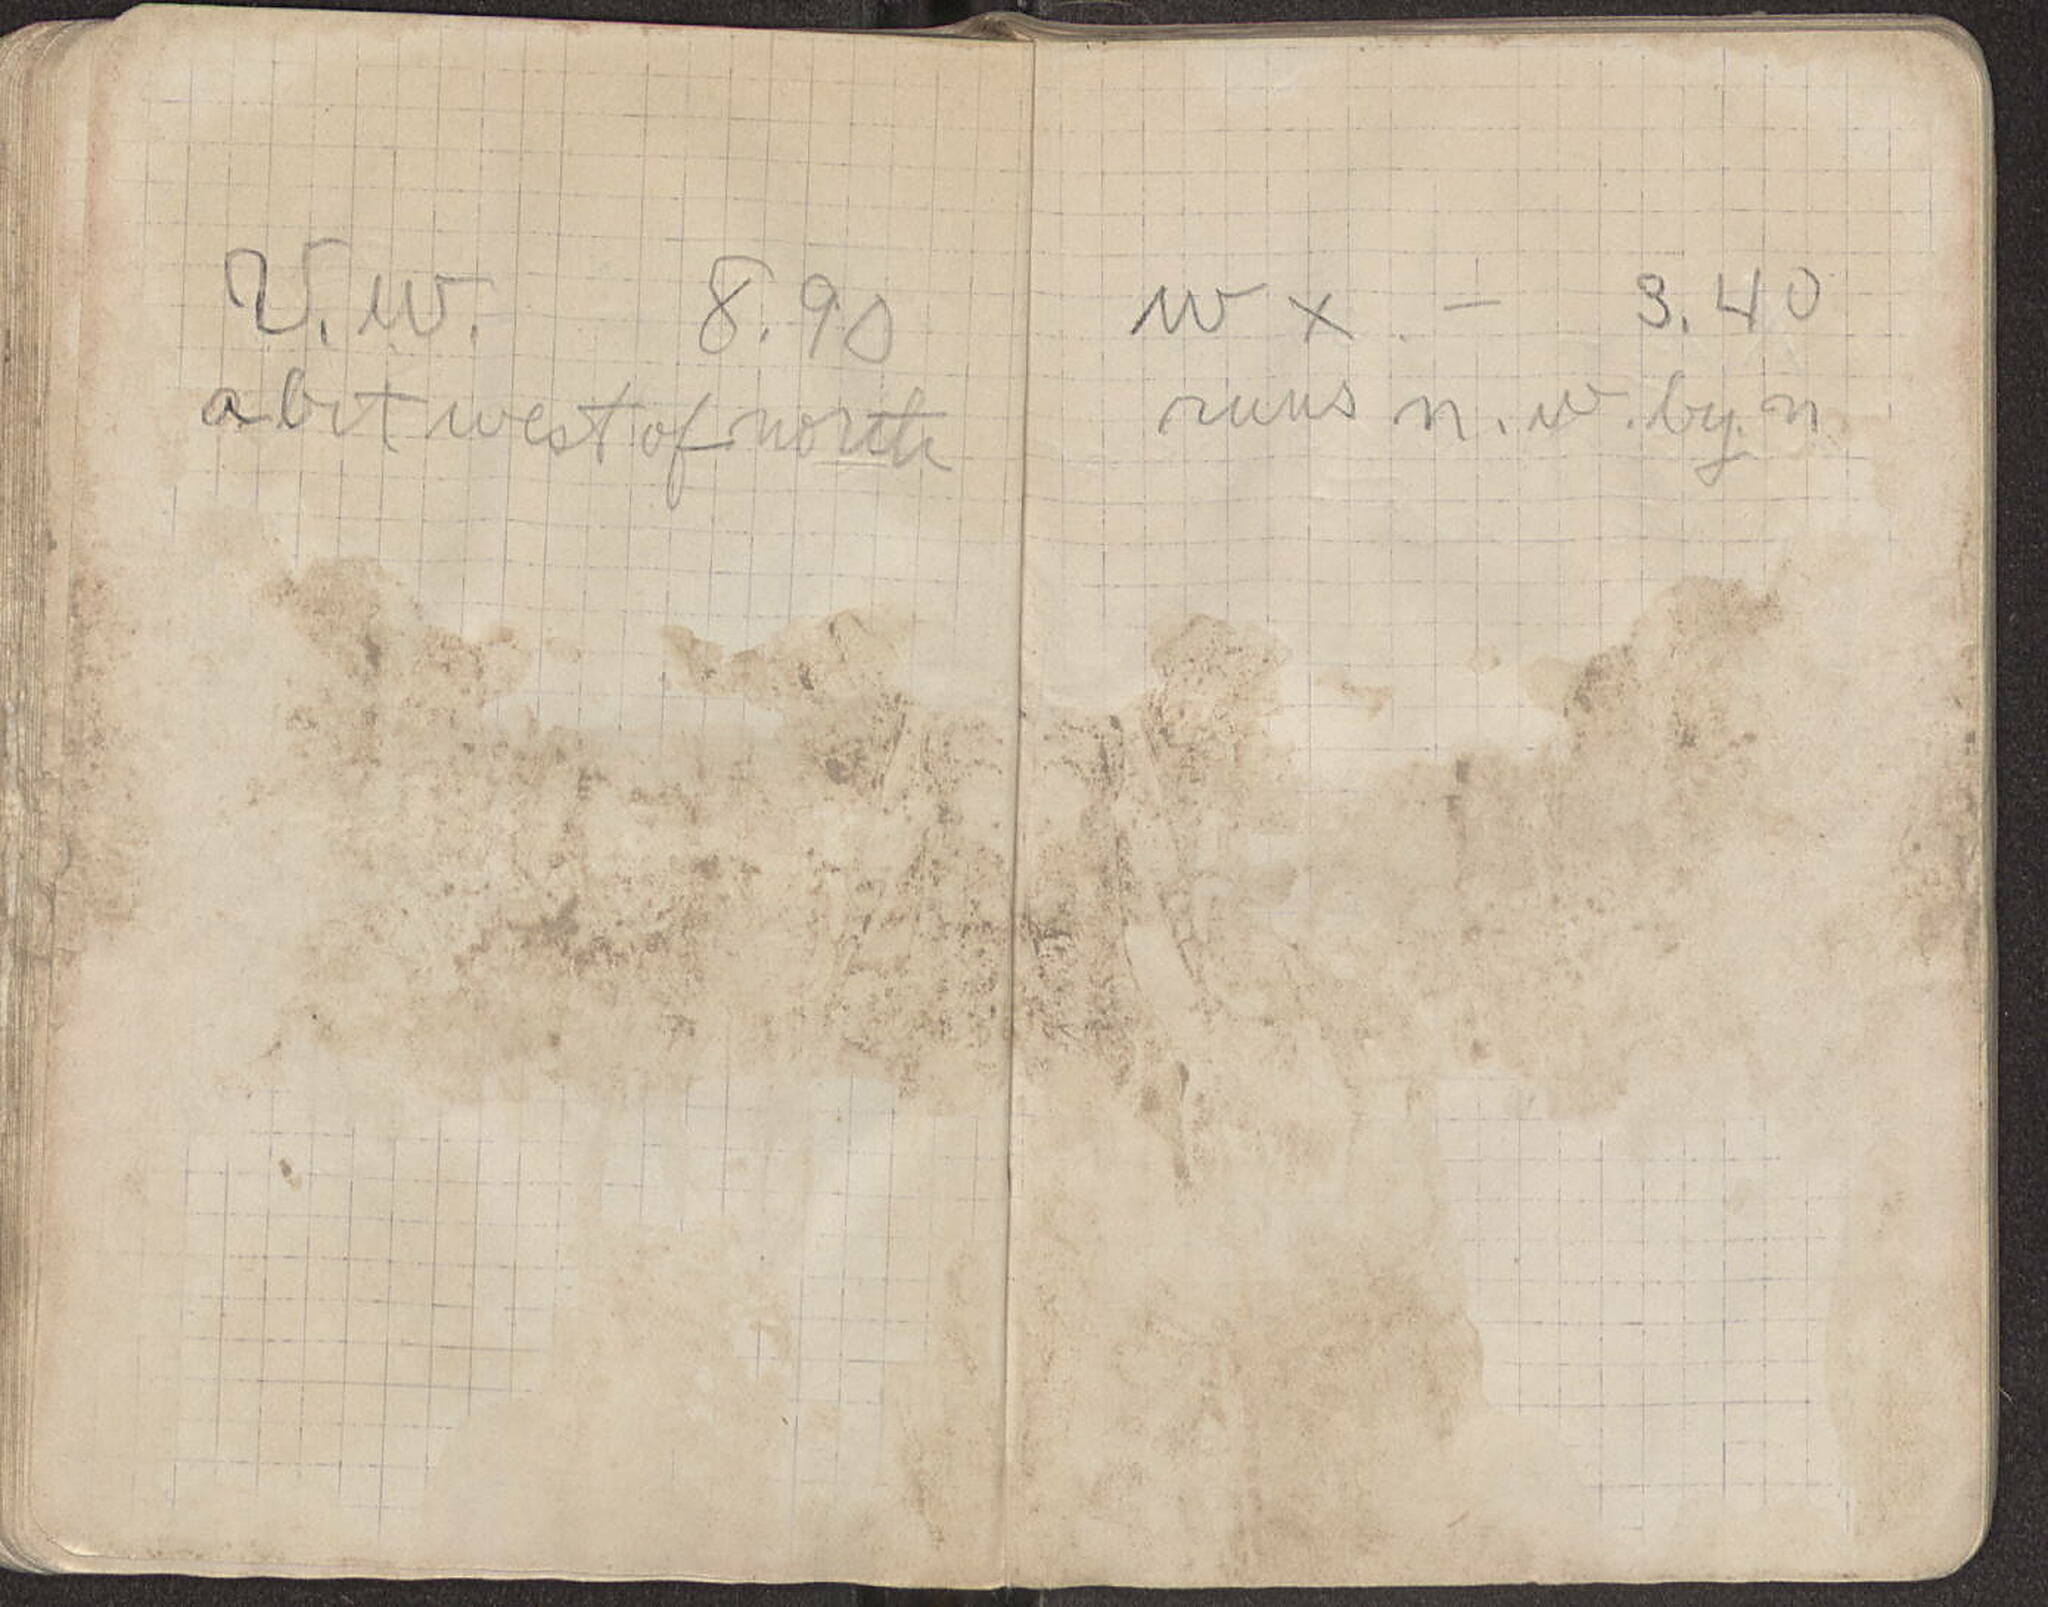 V. W. 8.90
a bit west of north
W x - 3.40
runs n. w. by n